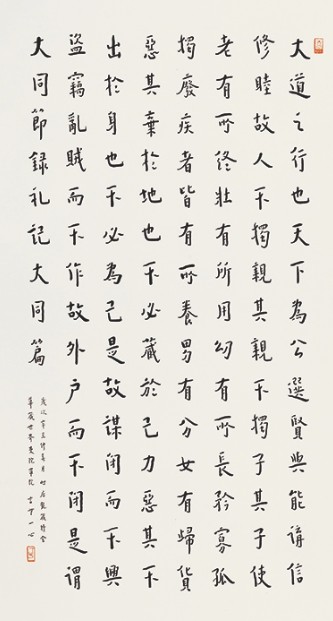 大道之行也天下為公選賢與能講信
修睦故人不獨親其親不獨子其子使
老有所終壯有所用幼有所長矜寡孤
獨廢疾者皆有所養男有分女有歸貨
惡其棄於地也不必藏於己力惡其不
出於身也不必為己是故謀閉而不興
盜竊亂賊而不作故外戶而不閉是謂
大同節録礼記大同篇